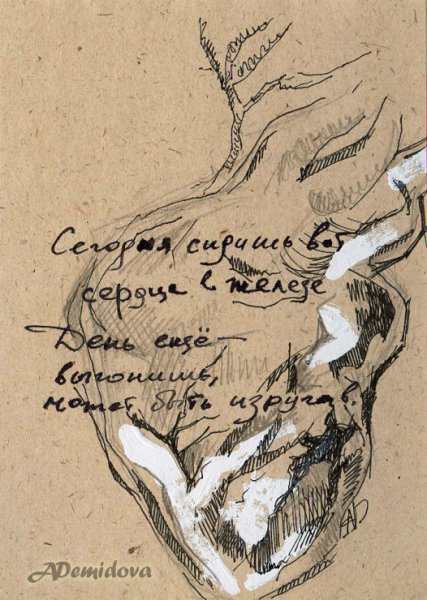 Сегодня сидишь вот
сердце в железе
День ещё —
выгонишь,
может быть изругав.
AD
ADemidova